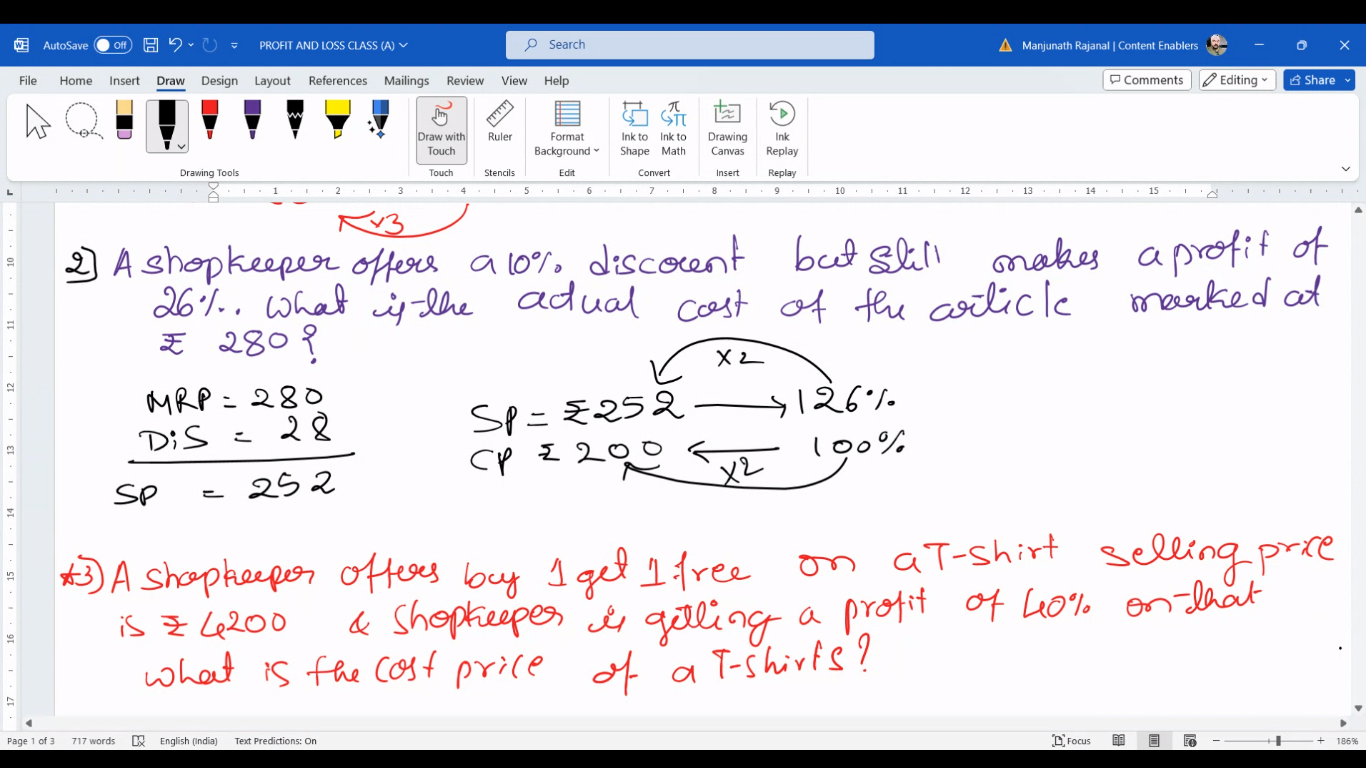 AutoSave Off PROFIT AND LOSS CLASS (A) Search Manjunath Rajanal | Content Enablers
File Home Insert Draw Design Layout References Mailings Review View Help Comments Editing Share
Draw with Touch Ruler Format Background Ink to Shape Ink to Math Drawing Canvas Ink Replay
Drawing Tools Touch Stencils Edit Convert Insert Replay
1 2 3 4 5 6 7 8 9 10 11 12 13 14 15
x3
2] A shopkeeper offers a 10% discount but still makes a profit of
26%. What is the actual cost of the article marked at
₹ 280?
x2
MRP = 280
SP = ₹252 → 126%
DiS = 28
CP ₹ 200 ← 100%
x2
SP = 252
*3) A shopkeeper offers buy 1 get 1 free on a T-shirt selling price
is ₹ 4200 & shopkeeper is getting a profit of 40% on that
what is the cost price of a T-shirts?
10
11
12
13
14
15
16
17
Page 1 of 3 717 words English (India) Text Predictions: On Focus 186%